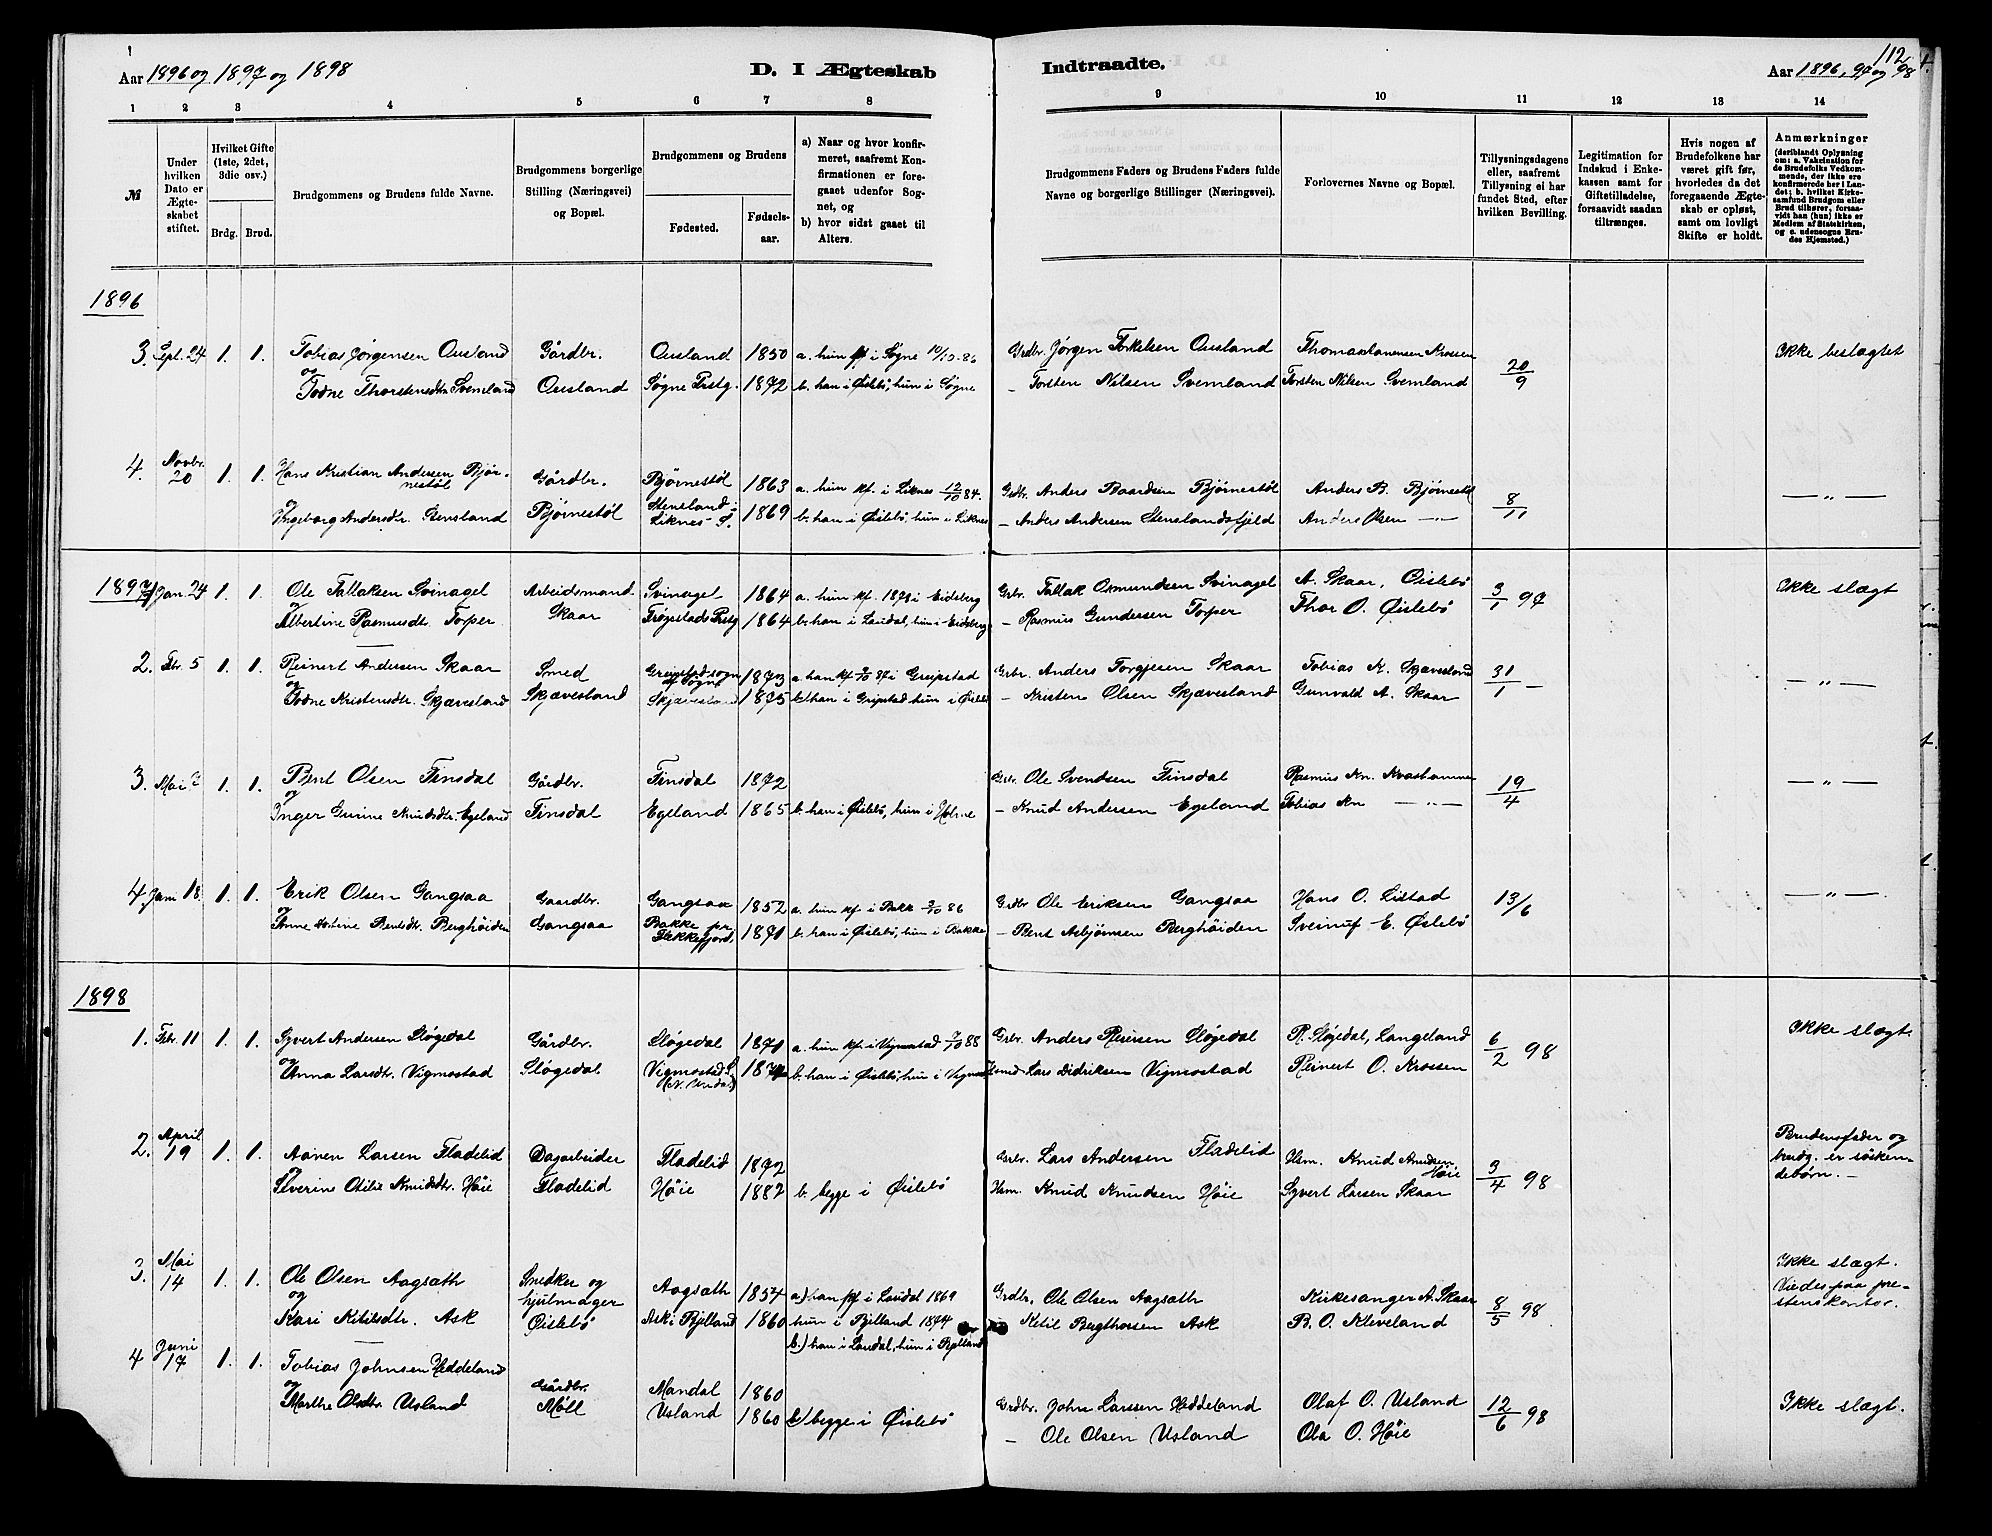 112
Aar 1896 og 1897 og 1898
D. I Ægteskab Indtraadte.
Aar 1896, 97 og 98
1 2 3 4 5 6 7 8 9 10 11 12 13 14
№
Under hvilken Dato er Ægteskabet stiftet.
Hvilket Gifte (1ste, 2det, 3die osv.)
Brdg. Brud.
Brudgommens og Brudens fulde Navne.
Brudgommens borgerlige Stilling (Næringsvei) og Bopæl.
Brudgommens og Brudens
Fødested.
Fødselsaar.
a) Naar og hvor konfirmeret, saafremt Konfirmationen er foregaaet udenfor Sognet, og
b) hvor sidst gaaet til Alters.
Brudgommens Faders og Brudens Faders fulde Navne og borgerlige Stillinger (Næringsvei).
Forlovernes Navne og Bopæl.
Tillysningsdagene eller, saafremt Tillysning ei har fundet Sted, efter hvilken Bevilling.
Legitimation for Indskud i Enkekassen samt for Giftetilladelse, forsaavidt saadan tiltrænges.
Hvis nogen af Brudefolkene har været gift før, hvorledes da det foregaaende Ægteskab er opløst, samt om lovligt Skifte er holdt.
Anmærkninger
(deriblandt Oplysning om: a. Vakcination for de Brudefolks Vedkommende, der ikke ere konfirmerede her i Landet; b. hvilket Kirkesamfund Brudgom eller Brud tilhører, forsaavidt han (hun) ikke er Medlem af Statskirken, og c. udensogns Brudes Hjemsted.)
1896
3. Sept. 24 1. 1. Tobias Jørgensen Ousland Gårdbr. Ousland 1850 a. hun kf i Søgne 10/10-86 Grdbr. Jørgen Torkelsen Ousland Thomas Hansen Krossen 20/9 Ikke beslægtet
og Todne Thorstensdtr Svemland Ousland Søgne Prstg. 1872 b. han i Øislebø, hun i Søgne — Torsten Nilsen Svemland Torsten Nilsen Svemland
4. Novbr. 20 1. 1. Hans Kristian Andersen Bjørnestøl Gårdbr. Bjørnestøl 1863 a. hun kf. i Liknes 12/10 84. Grdbr. Anders Baardsen Bjørnestøl Anders B. Bjørnestøl 8/11 — „ —
og Ingeborg Andersdtr. Stensland Bjørnestøl Stensland - Liknes S. 1869 b. han i Øislebø, hun i Liknes — Anders Andersen Stenslandsfjeld Anders Olsen — „ —
1897
1/ Jan. 24 1. 1. Ole Tallaksen Svinagel Arbeidsmand Svinagel 1864 a. hun kf. 1878 i Eidsberg Grbr. Tallak Osmundsen Svinagel A. Skaar, Øislebø 3/1 97 Ikke slægt
og Albertine Rasmusdtr. Torper Skaar Trøgstads Prstg 1864 b. han i Laudal, hun i Eidsberg — Rasmus Gundersen Torper Thor O. Øislebø
2. Fbr. 5 1. 1. Reinert Andersen Skaar Smed Greipstad sogn af Søgne 1873 a. han kf 2/10 87 i Greipstad Grbr. Anders Torgjesen Skaar Tobias K. Skjævesland 31/1 — — „ —
og Todne Kristensdtr. Skjævesland Skjævesland Skjævesland 1875 b. han i Gripstad hun i Øislebø — Kristen Olsen Skjævesland Gunvald A. Skaar
3. Mai 1. 1. Bent Olsen Finsdal Gårdbr. Finsdal 1872 Grbr. Ole Svendsen Finsdal Rasmus Kn. 19/4 — „ —
og Inger Gurine Knudsdtr. Egeland Finsdal Egeland 1865 b. han i Øislebø, hun i Holme — Knud Andersen Egeland Tobias Kn — „ —
4. Juni 18. 1. 1. Erik Olsen Gangsaa Gaardbr. Gangsaa 1852 a. hun kf i Bakke 3/10 86 Grdbr Ole Eriksen Gangsaa Hans O. Listad 13/6 — „ —
og Anne Bentsdtr. Berghöiden Gangsaa Bakke pr. Flekkefjord. 1871 b. han i Øislebø, hun i Bakke — Bent Asbjørnsen Berghöiden Sveinuf E. Øislebø
1898
1. Fbr. 11 1. 1. Syvert Andersen Sløgedal Gårdbr. Sløgedal 1871 a. hun kf. i Vigmostad 7/10 88 Grbr. Anders Reiersen Sløgedal R. Sløgedal, Langeland 6/2 98 Ikke slægt.
og Anna Larsdtr. Vigmostad Sløgedal Vigmostad S. (N. Undal) 1874 b. han i Øislebø, hun i Vigmost. Lars Didriksen Vigmostad Reinert O. Krossen
2. April 19 1. 1. Aanen Larsen Fladelid Dagarbeider Fladelid 1872 Grbr. Lars Andersen Fladelid Hsm. Knud Knudsen Höie 3/4 98 Brudensfader og brudg. er söskendebörn. —
og Severine Otilie Knudsdtr. Höie Fladelid Höie 1882 b. begge i Øislebø Hsm. Knud Knudsen Höie Syvert Larsen Skaar
3. Mai 14 1. 1. Ole Olsen Aagsæth Snedker og hjulmager Aagsæth 1854 a.) han kf i Laudal 1869 Grdbr. Ole Olsen Aagsæth Kirkesanger A. Skaar 8/5 98 Ikke slægt. Viedes paa prestenskontor.
og Kari Kitilsdtr. Ask Øislebø Ask i Bjelland 1860 hun i Bjelland 1874 Ketil Bergthorsen Ask B. O. Kleveland
b.) han i Laudal, hun i Bjelland
4 Juni 17 1. 1. Tobias Johnsen Heddeland Gårdbr. Mandal 1860 Grdbr. John Larsen Heddeland Olaf O. Usland 12/6 98 Ikke slægt.
og Marthe Olsdtr Usland Møll Usland 1860 b) begge i Øislebø — Ole Olsen Usland Ola O. Höie